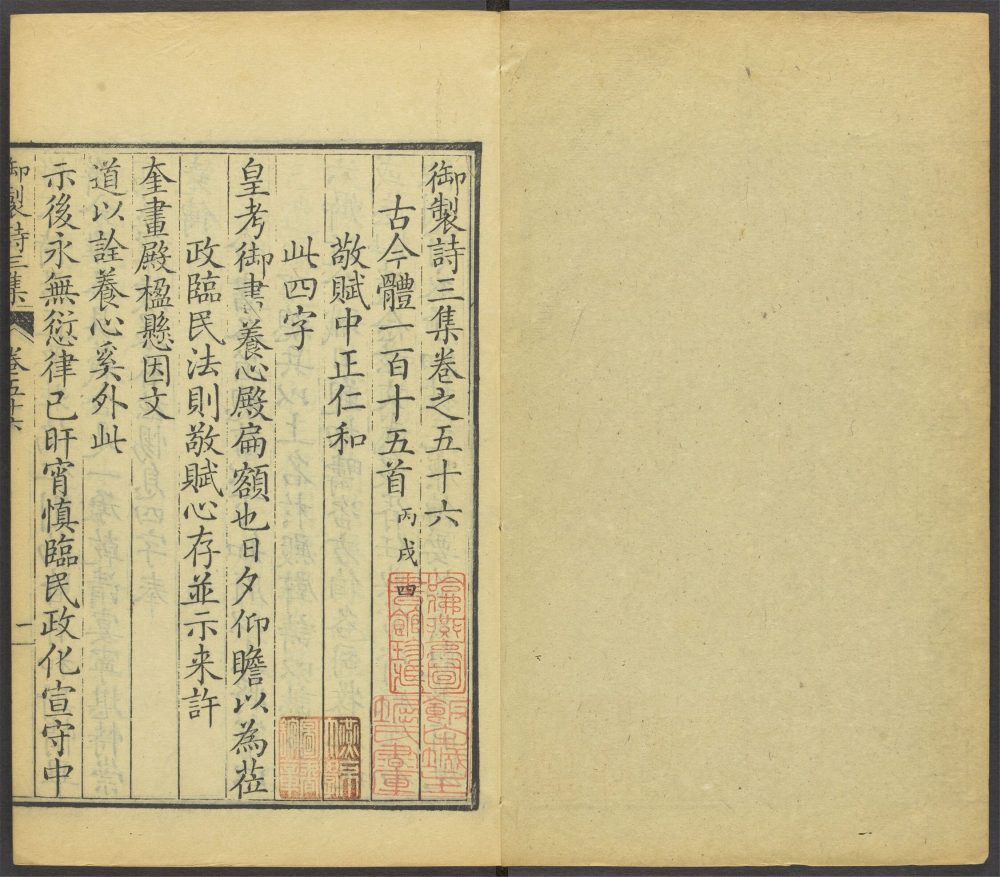 御製詩三集卷之五十六
古今體一百十五首 丙戌 四
敬賦中正仁和
此四字
皇考御書養心殿扁額也日夕仰瞻以為莅
政臨民法則敬賦心存並示来許
奎畫殿楹懸因文
道以詮養心奚外此
示後永無愆律己旰宵慎臨民政化宣守中
御製詩三集 卷五十六 一